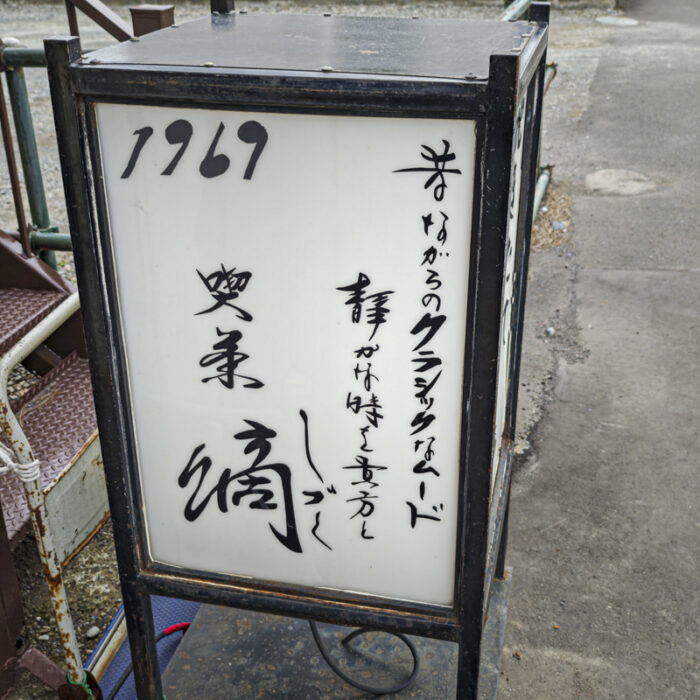 1969
昔ながらのクラシックなムード
静かな時を貴方と
喫茶
滴
しづく